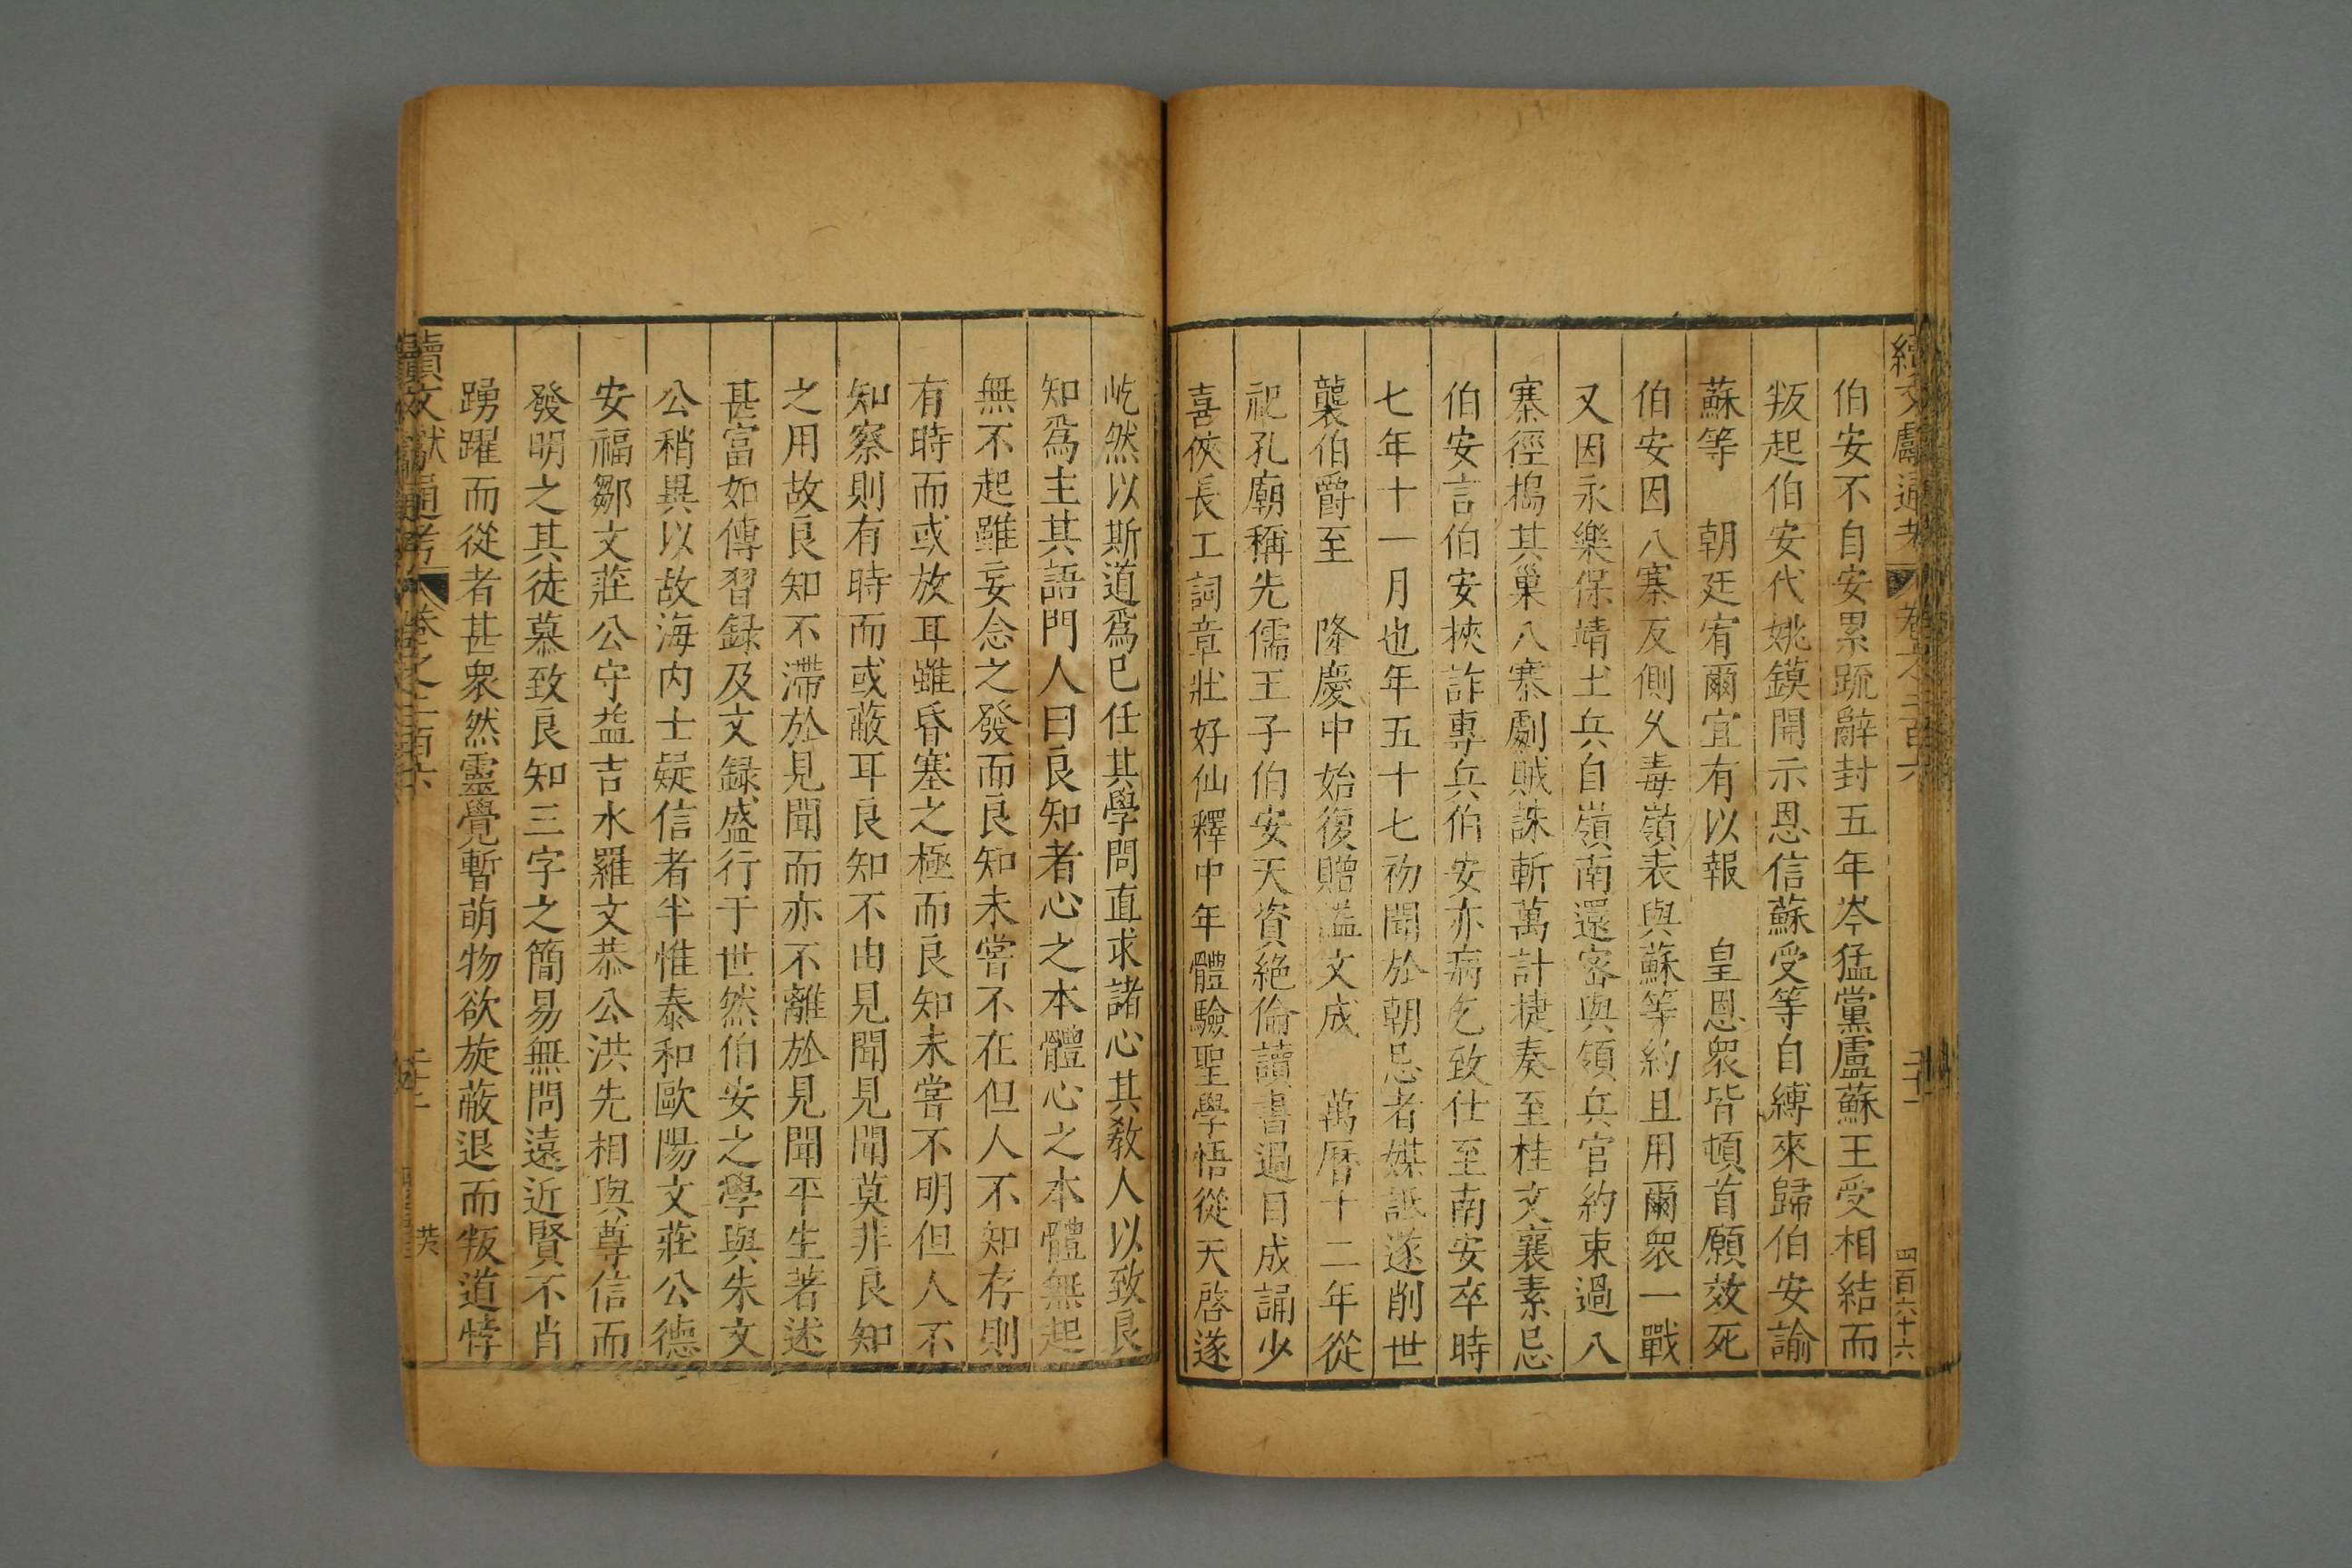 續文獻通考
卷之二百六
四百六十六
伯安不自安累疏辭封五年岑猛黨盧蘇王受相結而
叛起伯安代姚鏌開示恩信蘇受等自縛來歸伯安諭
蘇等 朝廷宥爾宜有以報 皇恩衆皆頓首願效死
伯安因八寨反側久毒嶺表與蘇等約且用爾衆一戰
又因永樂保靖土兵自嶺南還密與領兵官約束過八
寨徑搗其巢八寨劇賊誅斬萬計捷奏至桂文襄素忌
伯安言伯安挾詐專兵伯安亦病乞致仕至南安卒時
七年十一月也年五十七初聞於朝忌者媒詆遂削世
襲伯爵至 隆慶中始復贈謚文成 萬曆十二年從
祀孔廟稱先儒王子伯安天資絶倫讀書過目成誦少
喜俠長工詞章壯好仙釋中年體驗聖學悟從天啓遂
屹然以斯道爲已任其學問直求諸心其教人以致良
知爲主其語門人曰良知者心之本體心之本體無起
無不起雖妄念之發而良知未嘗不在但人不知存則
有時而或放耳雖昏塞之極而良知未嘗不明但人不
知察則有時而或蔽耳良知不由見聞見聞莫非良知
之用故良知不滯於見聞而亦不離於見聞平生著述
甚富如傳習録及文録盛行于世然伯安之學與朱文
公稍異以故海内士疑信者半惟泰和歐陽文莊公德
安福鄒文莊公守益吉水羅文恭公洪先相與尊信而
發明之其徒慕致良知三字之簡易無問遠近賢不肖
踴躍而從者甚衆然靈覺暫萌物欲旋蔽退而叛道悖
續文獻通考
卷之二百六